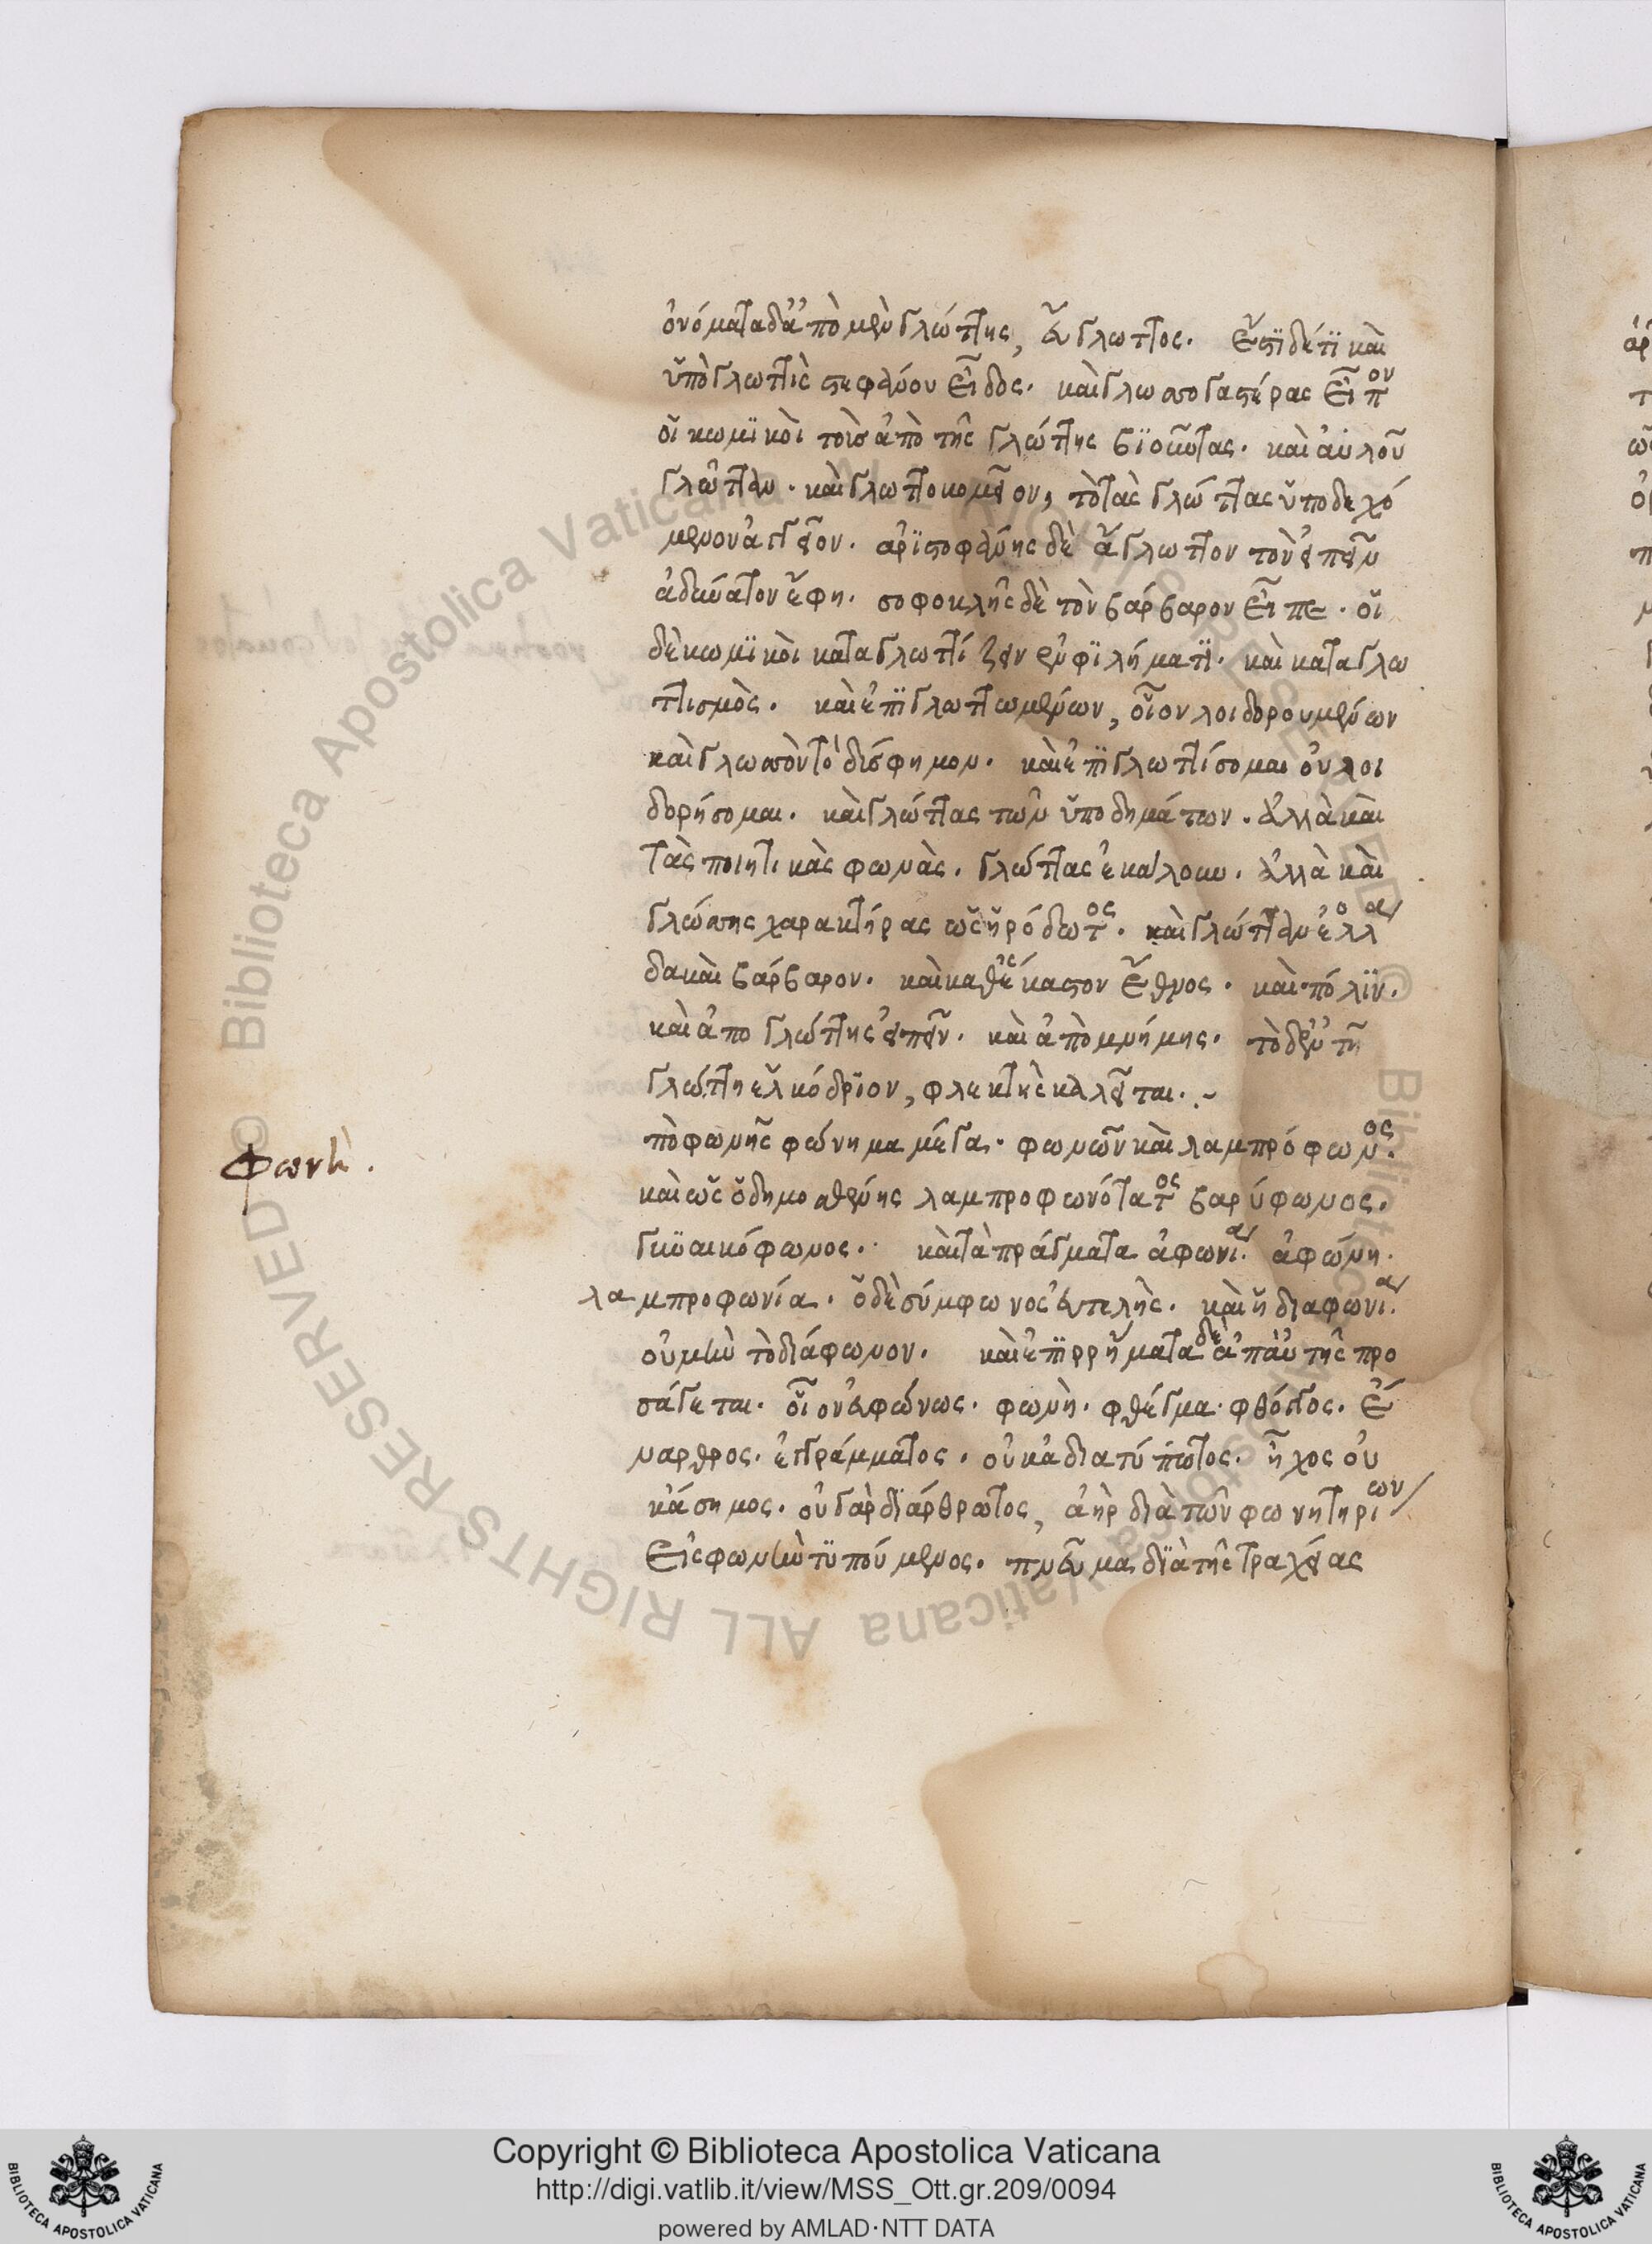 ὀνόματα δ' ἀπὸ μὲν γλώττης, εὔγλωττος. ἔστι δέ τι καὶ
ὑπογλωττὶς στεφάνου εἶδος. καὶ γλωσσογάστορας εἶπον
οἱ κωμικοὶ τοὺς ἀπὸ τῆς γλώττης βιοῦντας. καὶ αὐλοῦ
γλώτταν. καὶ γλωττοκομεῖον, τὸ τὰς γλώττας ὑποδεχό
μενον ἀγγεῖον. ἀριστοφάνης δὲ ἄγλωττον τὸν εἰπεῖν
ἀδύνατον ἔφη. σοφοκλῆς δὲ τὸν βάρβαρον εἶπε. οἱ
δὲ κωμικοὶ καταγλωττίζειν ἐν φιλήματι. καὶ καταγλω
ττισμὸς. καὶ ἐπιγλωττωμένων, οἷον λοιδορουμένων
καὶ γλωσσὸν τὸ δύσφημον. καὶ ἐπιγλωττίσομαι οὐ λοι
δορήσομαι. καὶ γλώττας τῶν ὑποδημάτων. ἀλλὰ καὶ
τὰς ποιητικὰς φωνὰς. γλώττας ἐκάλουν. ἀλλὰ καὶ
γλώσσης χαρακτήρας ὡς ἡρόδωτος. καὶ γλώτταν ἑλλά
δα καὶ βάρβαρον. καὶ καθ' ἕκαστον ἔθνος. καὶ πόλιν.
καὶ ἀπὸ γλώττης εἰπεῖν. καὶ ἀπὸ μνήμης. τὸ δ' ἐν τῇ
γλώττῃ ἑλκύδριον, φλεκτὶς καλεῖται.
πὸ φωνῆς φώνημα μέγα. φωνῶν καὶ λαμπρόφωνος.
καὶ ὡς ὁ δημοσθένης λαμπροφωνότατος βαρύφωνος.
γυναικόφωνος. καὶ τὰ πράγματα ἀφωνία. ἀφώνη.
λαμπροφωνία. ὁ δὲ σύμφωνος εὐτελὴς. καὶ ἡ διαφωνία.
οὐ μὴν τὸ διάφωνον. καὶ ἐπιρρήματα δὲ ἀπ' αὐτῆς προ
σάγεται. οἷον εὐφώνως. φωνὴ. φθέγμα. φθόγγος. ἔ
ναρθρος. ἐγγράμματος. οὐκ ἀδιατύπωτος. ἦχος οὐ
κ ἄσημος. οὐ γὰρ διάρθρωτος, ἀὴρ διὰ τῶν φωνητηρίων
εἰς φωνὴν τυπούμενος. πνεῦμα διὰ τῆς τραχείας
φωνή.
Copyright © Biblioteca Apostolica Vaticana
http://digi.vatlib.it/view/MSS_Ott.gr.209/0094
powered by AMLAD·NTT DATA
BIBLIOTECA APOSTOLICA VATICANA
BIBLIOTECA APOSTOLICA VATICANA
© Biblioteca Apostolica Vaticana ALL RIGHTS RESERVED